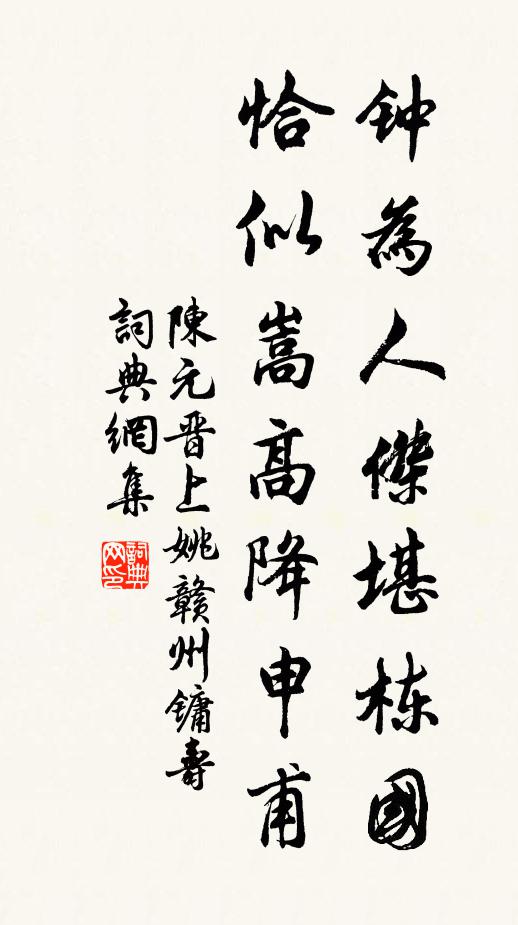 钟為人傑堪栋國
恰似嵩高降申甫
陳元晋上姚赣州鏞壽
詞典網集
詞典网印